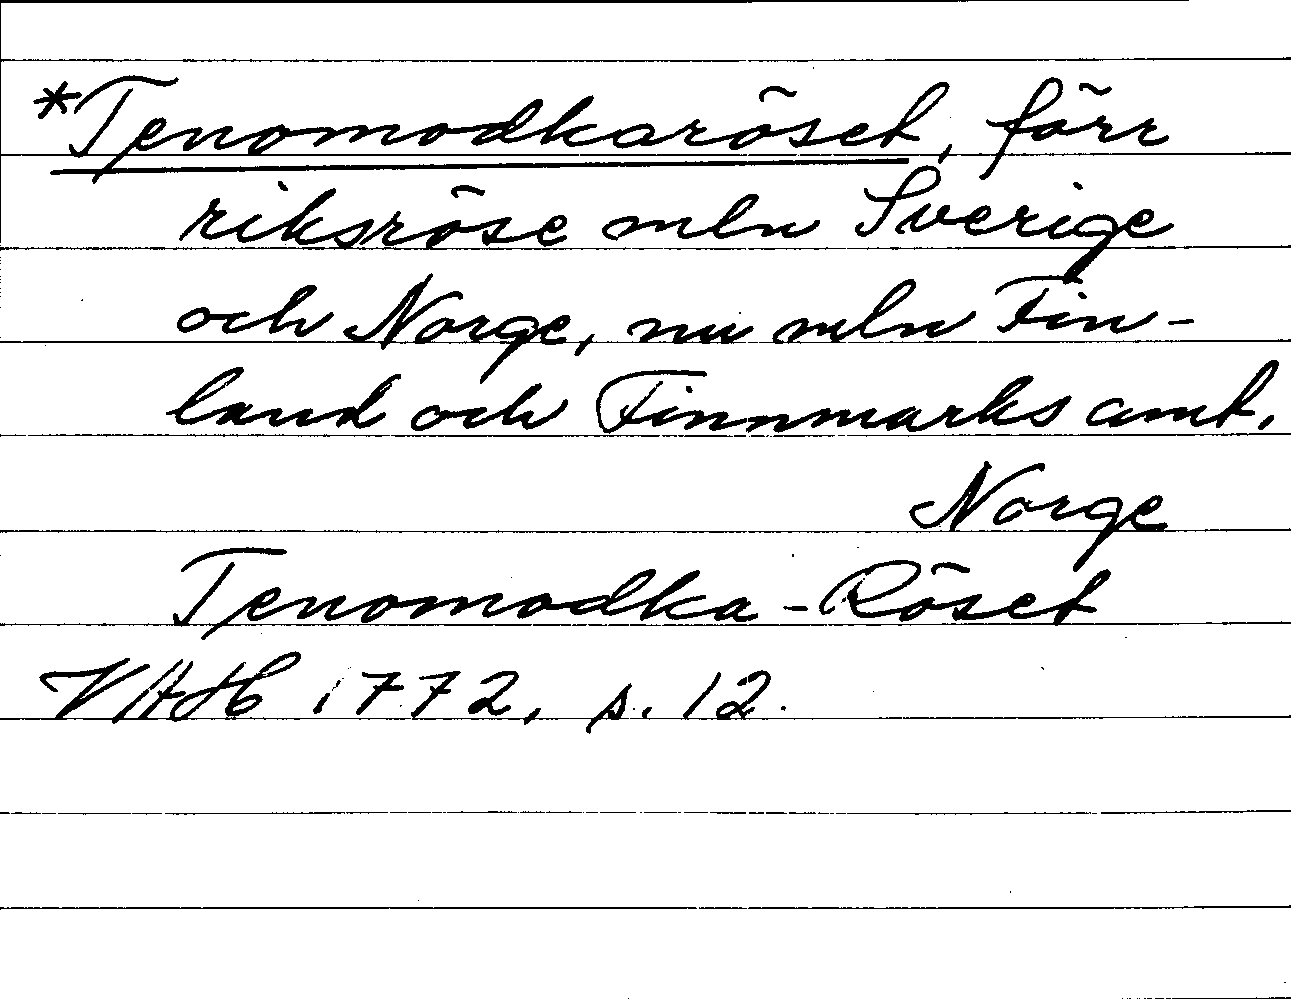 *Tenomodkaröset, förr
riksröse mln Sverige
och Norge, nu mln Fin-
land och Finnmarks amt.
Norge
Tenomodka-Röset
VAH 1772, s. 12.